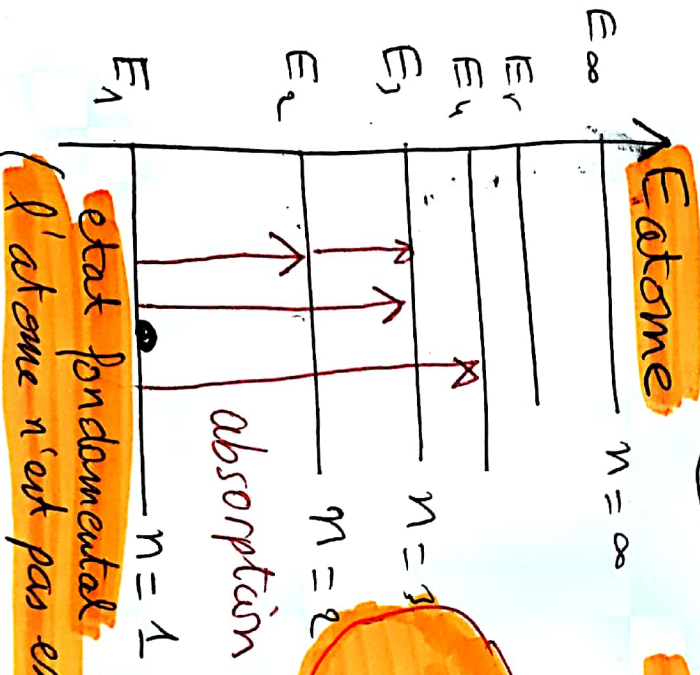 E atome
E∞
n = ∞
E5
E4
E3
n = 3
E2
n = 2
absorption
E1
n = 1
etat fondamental
(l'atome n'est pas